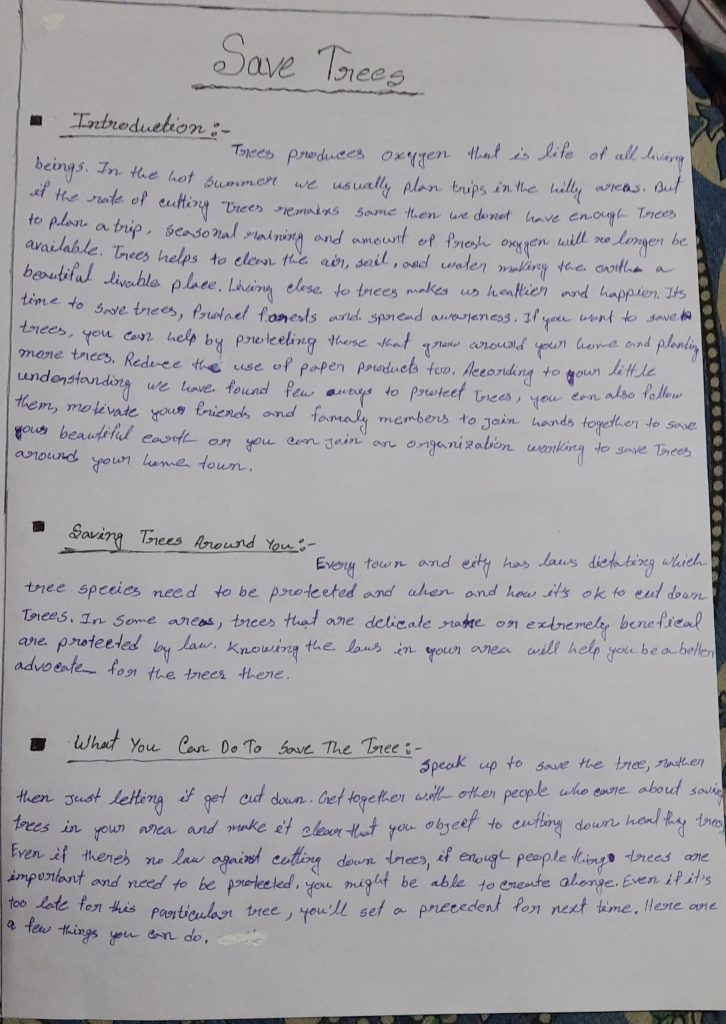 Save Trees
Introduction:-
Trees produces oxygen that is life of all living
beings. In the hot summer we usually plan trips in the hilly areas. But
if the rate of cutting Trees remains same then we donot have enough Trees
to plan a trip, seasonal raining and amount of fresh oxygen will no longer be
available. Trees helps to clean the air, soil, and water making the earth a
beautiful livable place. Living close to trees makes us healthier and happier. Its
time to save trees, Protect forests and spread awareness. If you want to save
trees, you can help by protecting those that grow around your home and planting
more trees. Reduce the use of paper products too. According to your little
understanding we have found few ways to protect Trees, you can also follow
them, motivate your friends and famaly members to join hands together to save
your beautiful earth or you can join an organization working to save Trees
around your home town.
Saving Trees Around You:-
Every town and city has laws dictating which
tree species need to be protected and when and how it's ok to cut down
Trees. In some areas, trees that are delicate rare or extremely benefical
are protected by law. Knowing the laws in your area will help you be a better
advocate for the trees there.
What You Can Do To Save The Tree:-
Speak up to save the tree, rather
then just letting it get cut down. Get together with other people who care about saving
trees in your area and make it clear that you object to cutting down healthy trees
Even if there's no law against cutting down trees, if enough people things trees are
important and need to be protected, you might be able to create change. Even if it's
too late for this particular tree, you'll set a precedent for next time. Here are
a few things you can do.